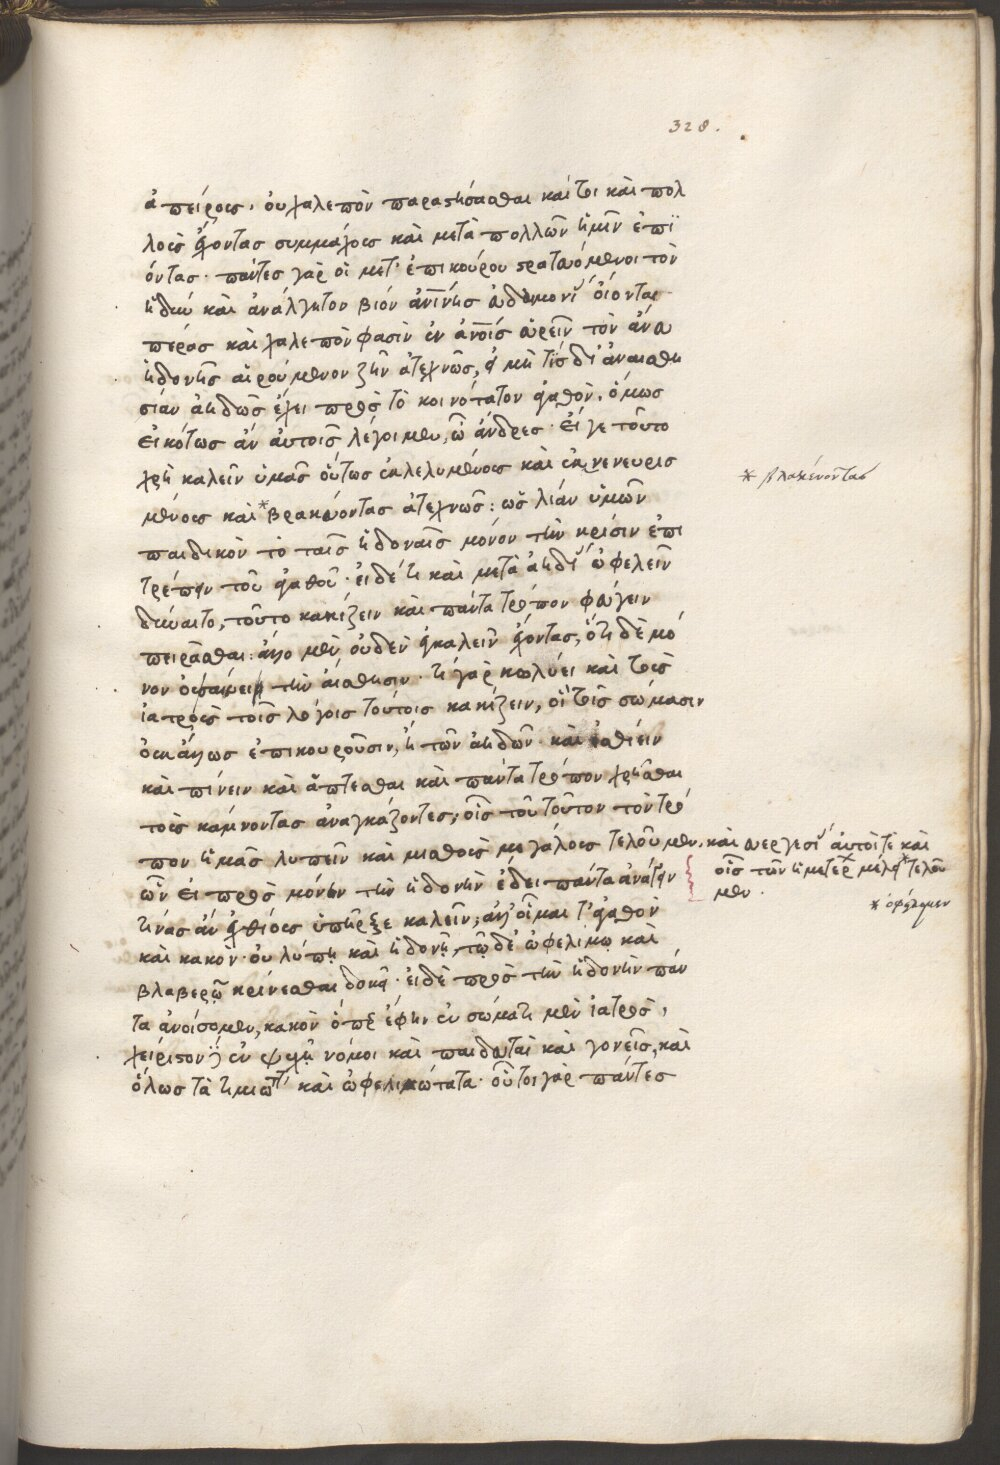 328.
ἀπείροις, οὐ χαλεπὸν παραστήσασθαι καίτοι καὶ πολ
λοῖς ἔχοντας συμμάχοις καὶ μετὰ πολλῶν ἡμῖν ἐπϊ
όντας· πάντες γὰρ οἱ μετ' ἐπικούρου στρατευόμενοι τὸν
ἡδὺν καὶ ἀνάλγητον βίον
πέρας καὶ χαλεπὸν φασὶν ἐν εὑρεῖν τὸν ἄνευ
ἡδονῆς αἱρούμενον ζῆν ἀτεχνῶς, εἰ μὴ τίς δι' ἀναισθη
σίαν ἀηδῶς ἔχει πρὸς τὸ κοινότατον ἀγαθὸν. ὅμως
εἰκότως ἂν αὐτοῖς λέγοιμεν, ὦ ἄνδρες· εἴγε τοῦτο
χρὴ καλεῖν ὑμᾶς οὕτως ἐκλελυμένοις καὶ ἐκνενευρισ
μένοις καὶ *βρακεύοντας ἀτεχνῶς: ὡς λίαν ὑμῶν
παιδικὸν τὸ ταῖς ἡδοναῖς μόνον τὴν κρίσιν ἐπι
τρέπειν τοῦ ἀγαθοῦ· εἰ δέ τι καὶ μετὰ ἀηδίας ὠφελεῖν
δύναιτο, τοῦτο κακίζειν καὶ πάντα τρόπον φεύγειν
πειρᾶσθαι: ἄλλο μὲν οὐδὲν ἐγκαλεῖν ἔχοντας, ὅτι δὲ μό
νον τὴν αἴσθησιν· τί γὰρ κωλύει καὶ τοῖς
ἰατροῖς τοῖς λόγοις τούτοις κακίζειν, οἳ τοῖς σώμασιν
οὐκ ἄλλως ἐπικουροῦσιν, ἢ τῶν ἀηδῶν· καὶ ἐσθίειν
καὶ πίνειν καὶ ἅπτεσθαι καὶ πάντα τρόπον χρῆσθαι
τοῖς κάμνοντας ἀναγκάζοντες; οἷς τοῦ τοῦτον τὸν τρό
πον ἡμᾶς λυπεῖν καὶ μισθοὺς μεγάλοις τελοῦμεν.
ὧν εἰ πρὸς μόνην τὴν ἡδονὴν ἔδει πάντα ἀνάγειν
τίνας ἂν ἐχθίοις ὑπῆρξε καλεῖν; ἀλλ' οἶμαι τ' ἀγαθὸν
καὶ κακὸν· οὐ λύπῃ καὶ ἡδονῇ, τῷ δὲ ὠφελίμῳ καὶ
βλαβερῷ κρίνεσθαι δοκεῖ· εἰ δὲ πρὸς τὴν ἡδονὴν πάν
τα ἀνοίσομεν, κακὸν ὅπερ ἔφην ἐν σώματι μὲν ἰατρὸς,
χείριστον ἐν ψυχῇ νόμοι καὶ παιδευταὶ καὶ γονεῖς, καὶ
ὅλως τὰ καὶ ὠφελιμώτατα· οὗτοι γὰρ πάντες
* βλακεύοντας
καὶ εὐεργεσίας αὐτοί τε καὶ
οἷς τῶν ἡμετέρων μέλει *τελοῦ
μεν.
* ὀφείλομεν